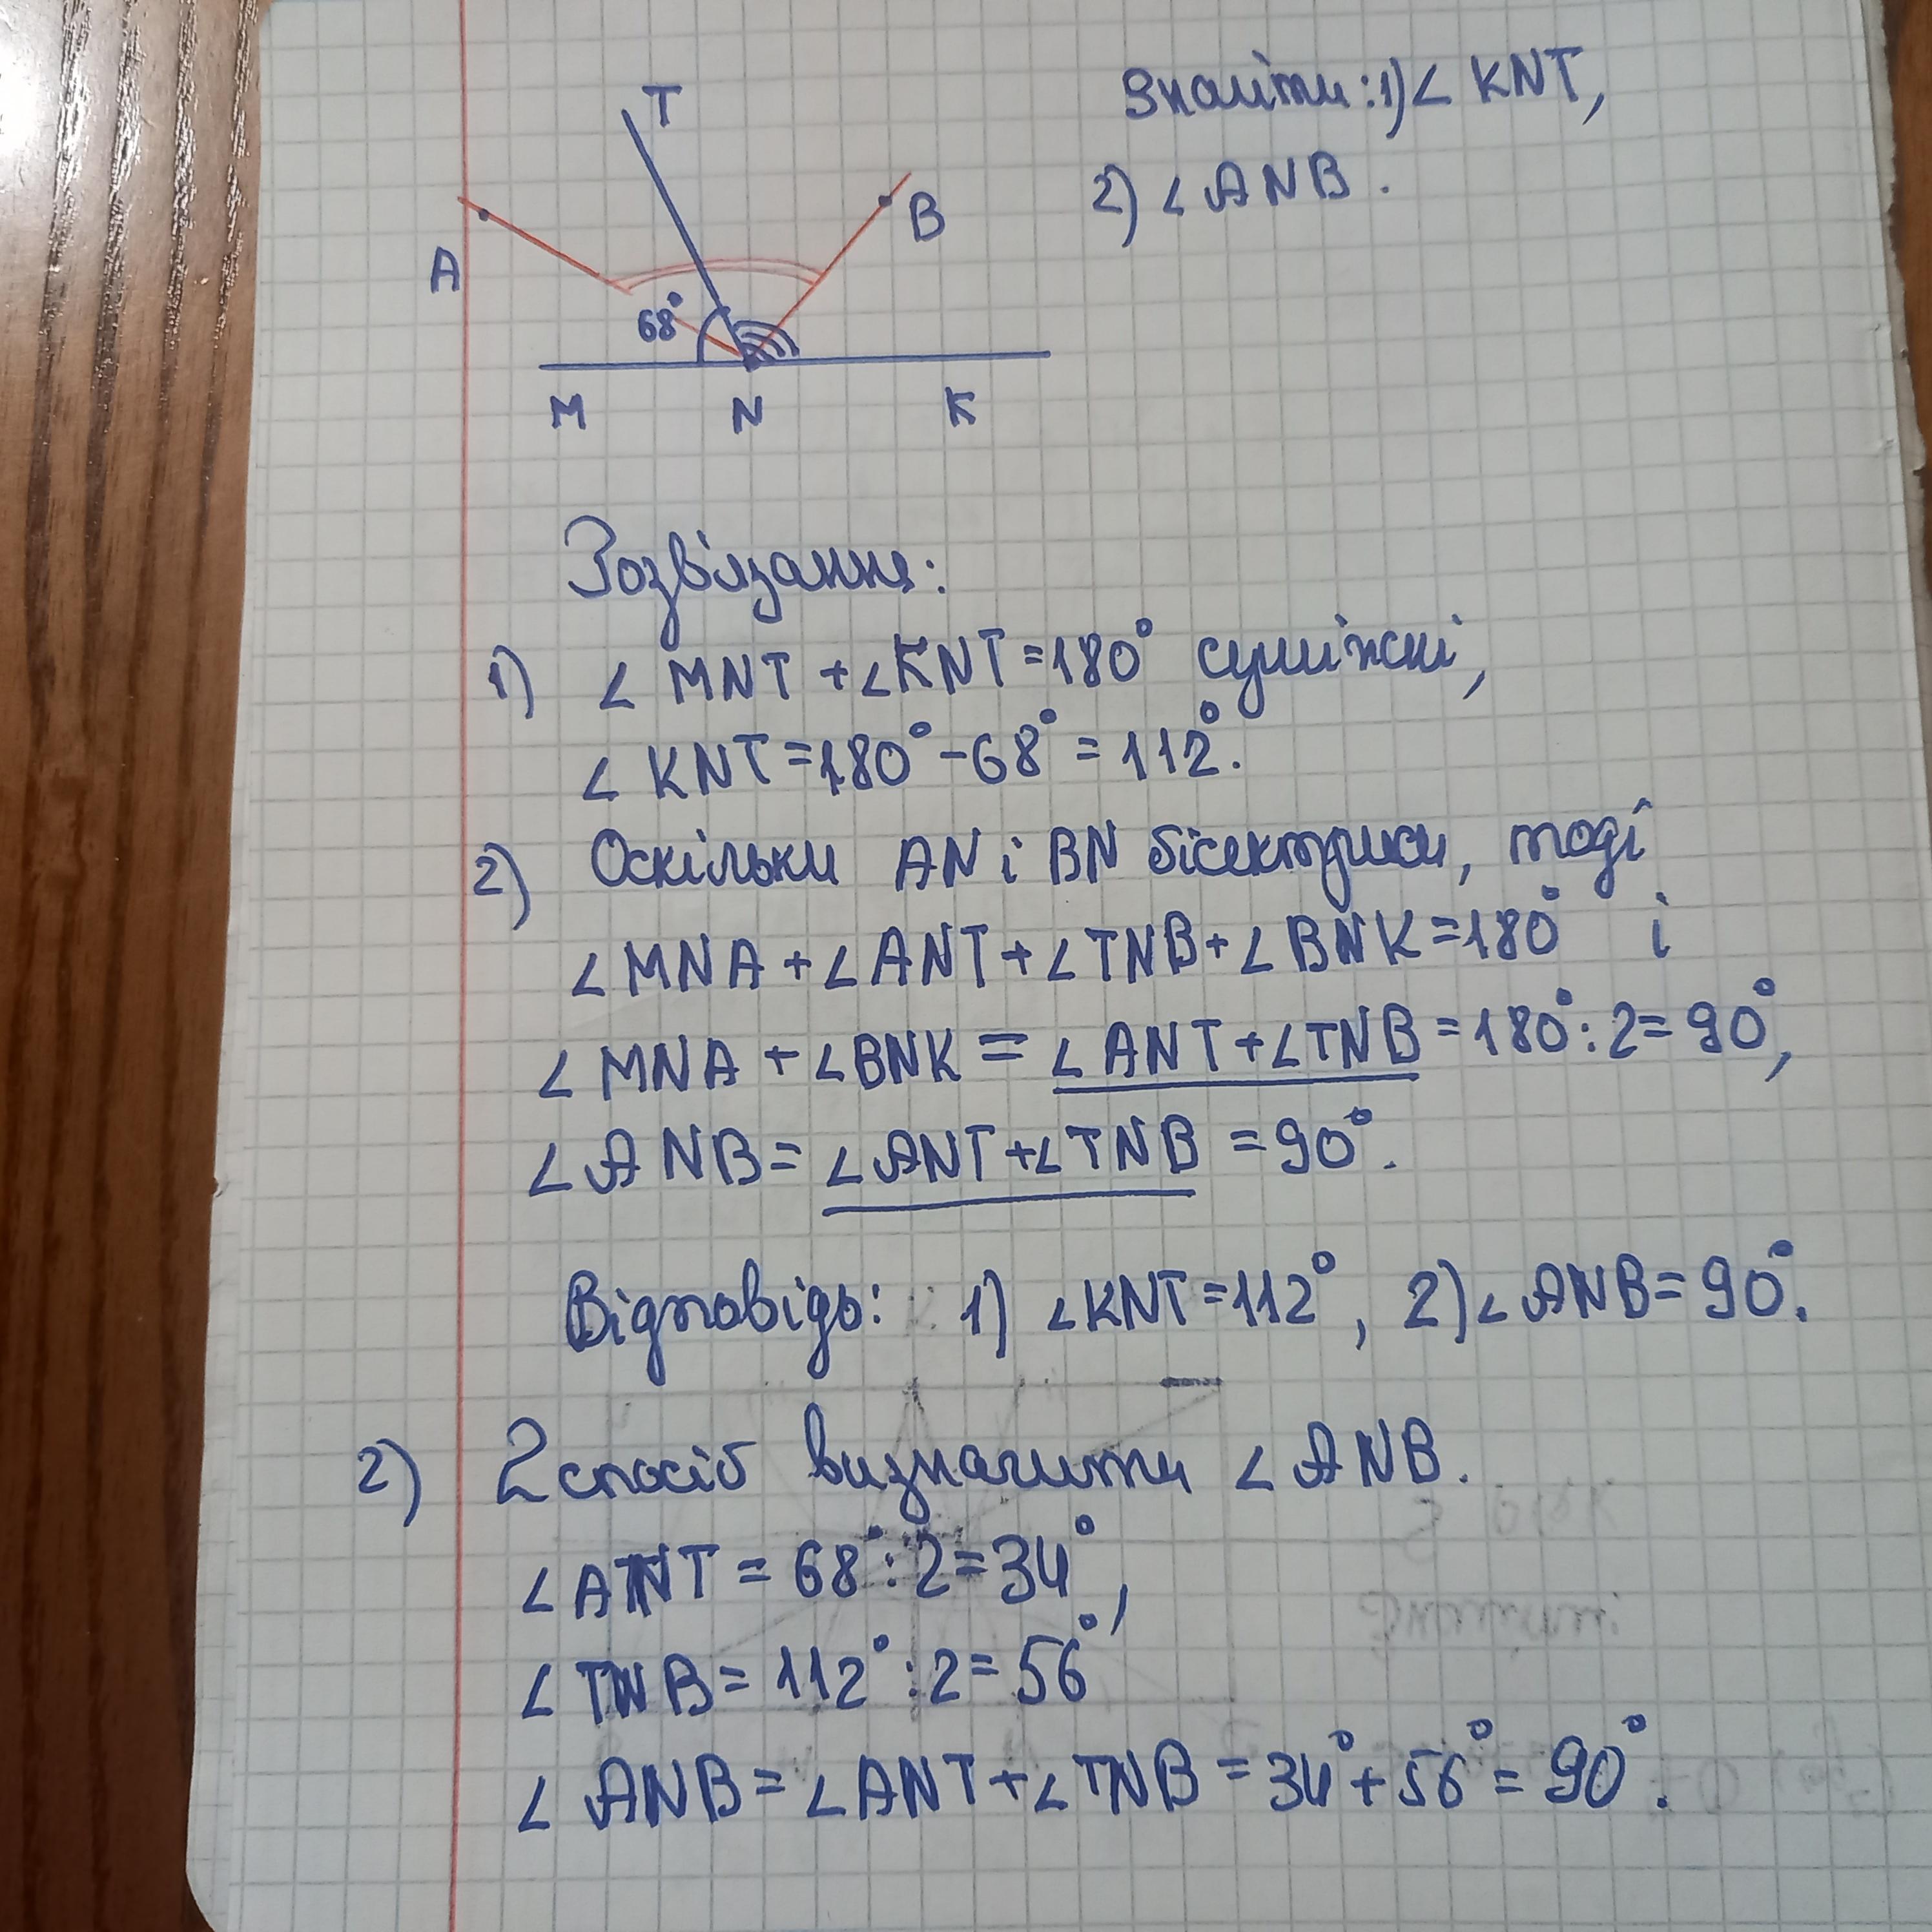 Знайти: 1) ∠ KNT,
2) ∠ ANB.
T
B
A
68°
M N K
Розв'язання:
1) ∠ MNT + ∠KNT = 180° суміжні,
∠ KNT = 180° - 68° = 112°.
2) Оскільки AN і BN бісектриси, тоді
∠MNA + ∠ANT + ∠TNB + ∠BNK = 180° і
∠MNA + ∠BNK = ∠ANT + ∠TNB = 180° : 2 = 90°,
∠ANB = ∠ANT + ∠TNB = 90°.
Відповідь: 1) ∠KNT = 112°, 2) ∠ANB = 90°.
2) 2 спосіб визначити ∠ANB.
∠ANT = 68° : 2 = 34°,
∠TNB = 112° : 2 = 56°
∠ANB = ∠ANT + ∠TNB = 34° + 56° = 90°.